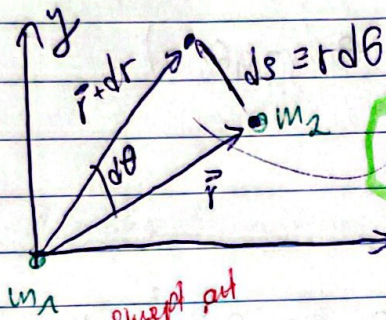 y
r⃗+dr
ds ≡ rdθ
dθ
m₂
r⃗
m₁
swept out